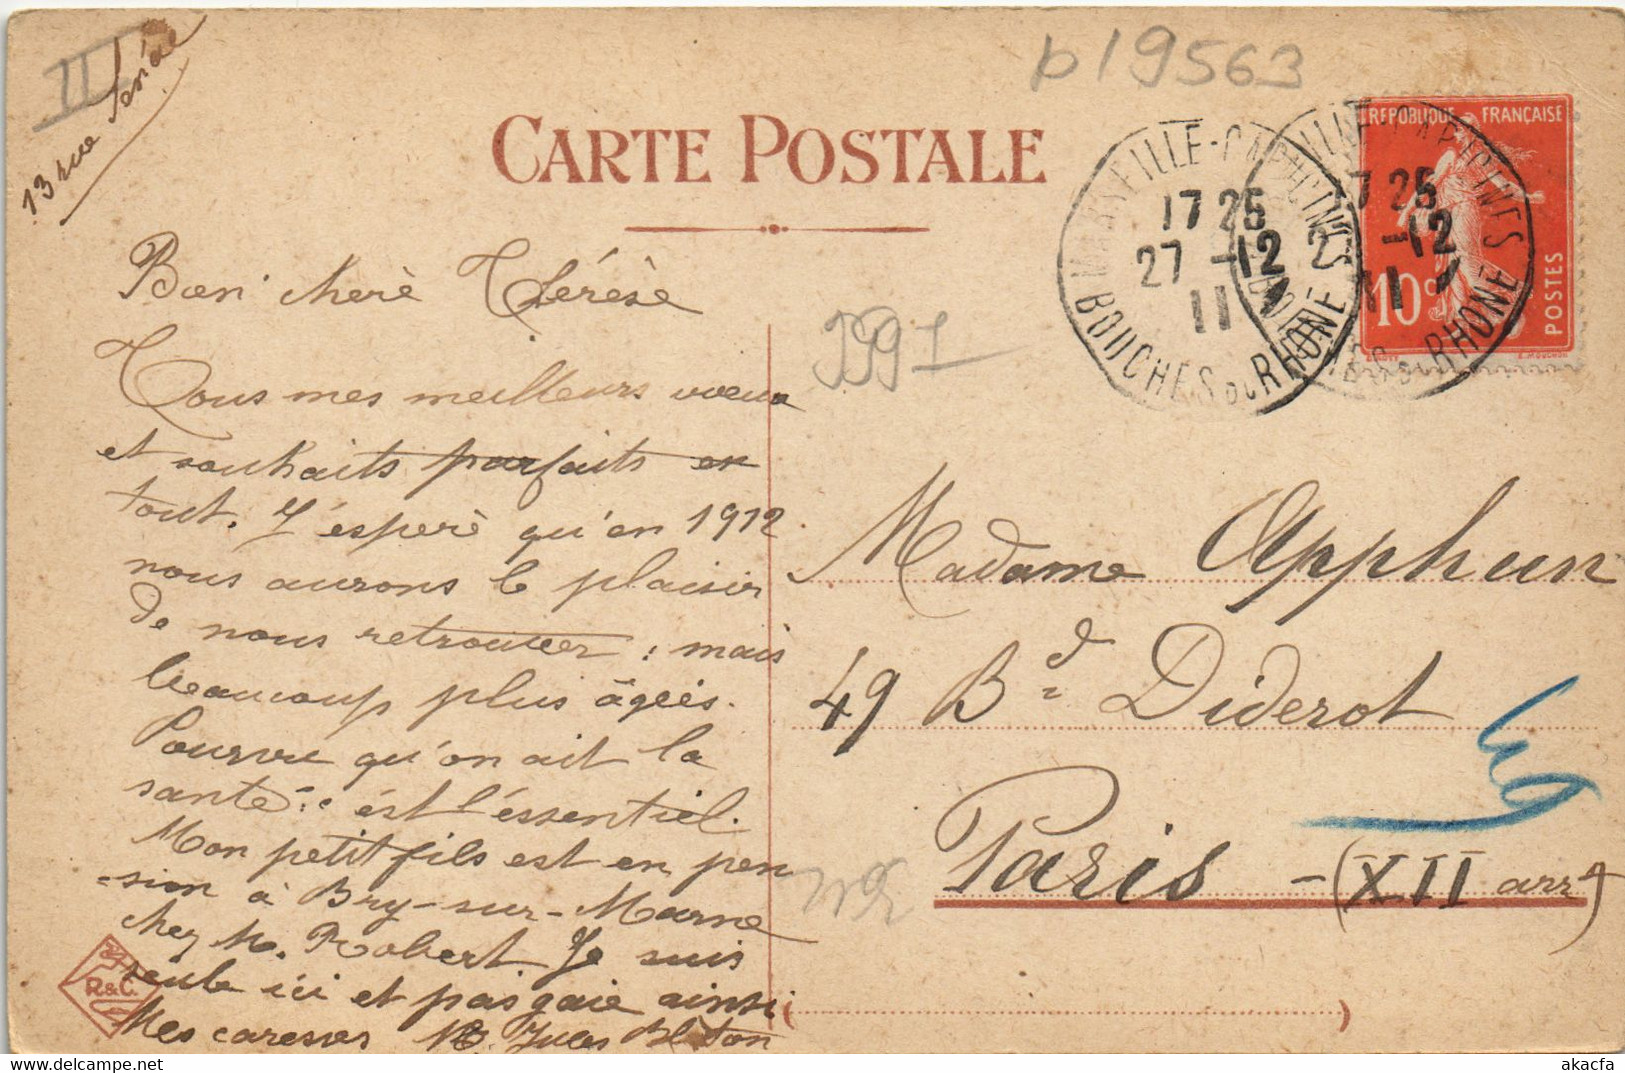 13 rue
II
p19563
CARTE POSTALE
REPUBLIQUE FRANÇAISE
10c
POSTES
E. MOUCHON
MARSEILLE-CAPUCINES
17 25
27 -12
11
BOUCHES DU RHONE
7 25
2 -12
11
BOUCHES DU RHONE
Bien chère Thérèse
Tous mes meilleurs voeux
et souhaits parfaits en
tout. J'espère qu'en 1912
nous aurons le plaisir
de nous retrouver ; mais
beaucoup plus âgées.
Pourvu qu'on ait la
santé : c'est l'essentiel.
Mon petit fils est en pen
-sion à Bry-sur-Marne
chez M. Robert. Je suis
seule ici et pas gaie ainsi
Mes caresses Jules
Madame Apphun
49 Bd Diderot
Paris - (XII arrt)
R&C.
akacfa